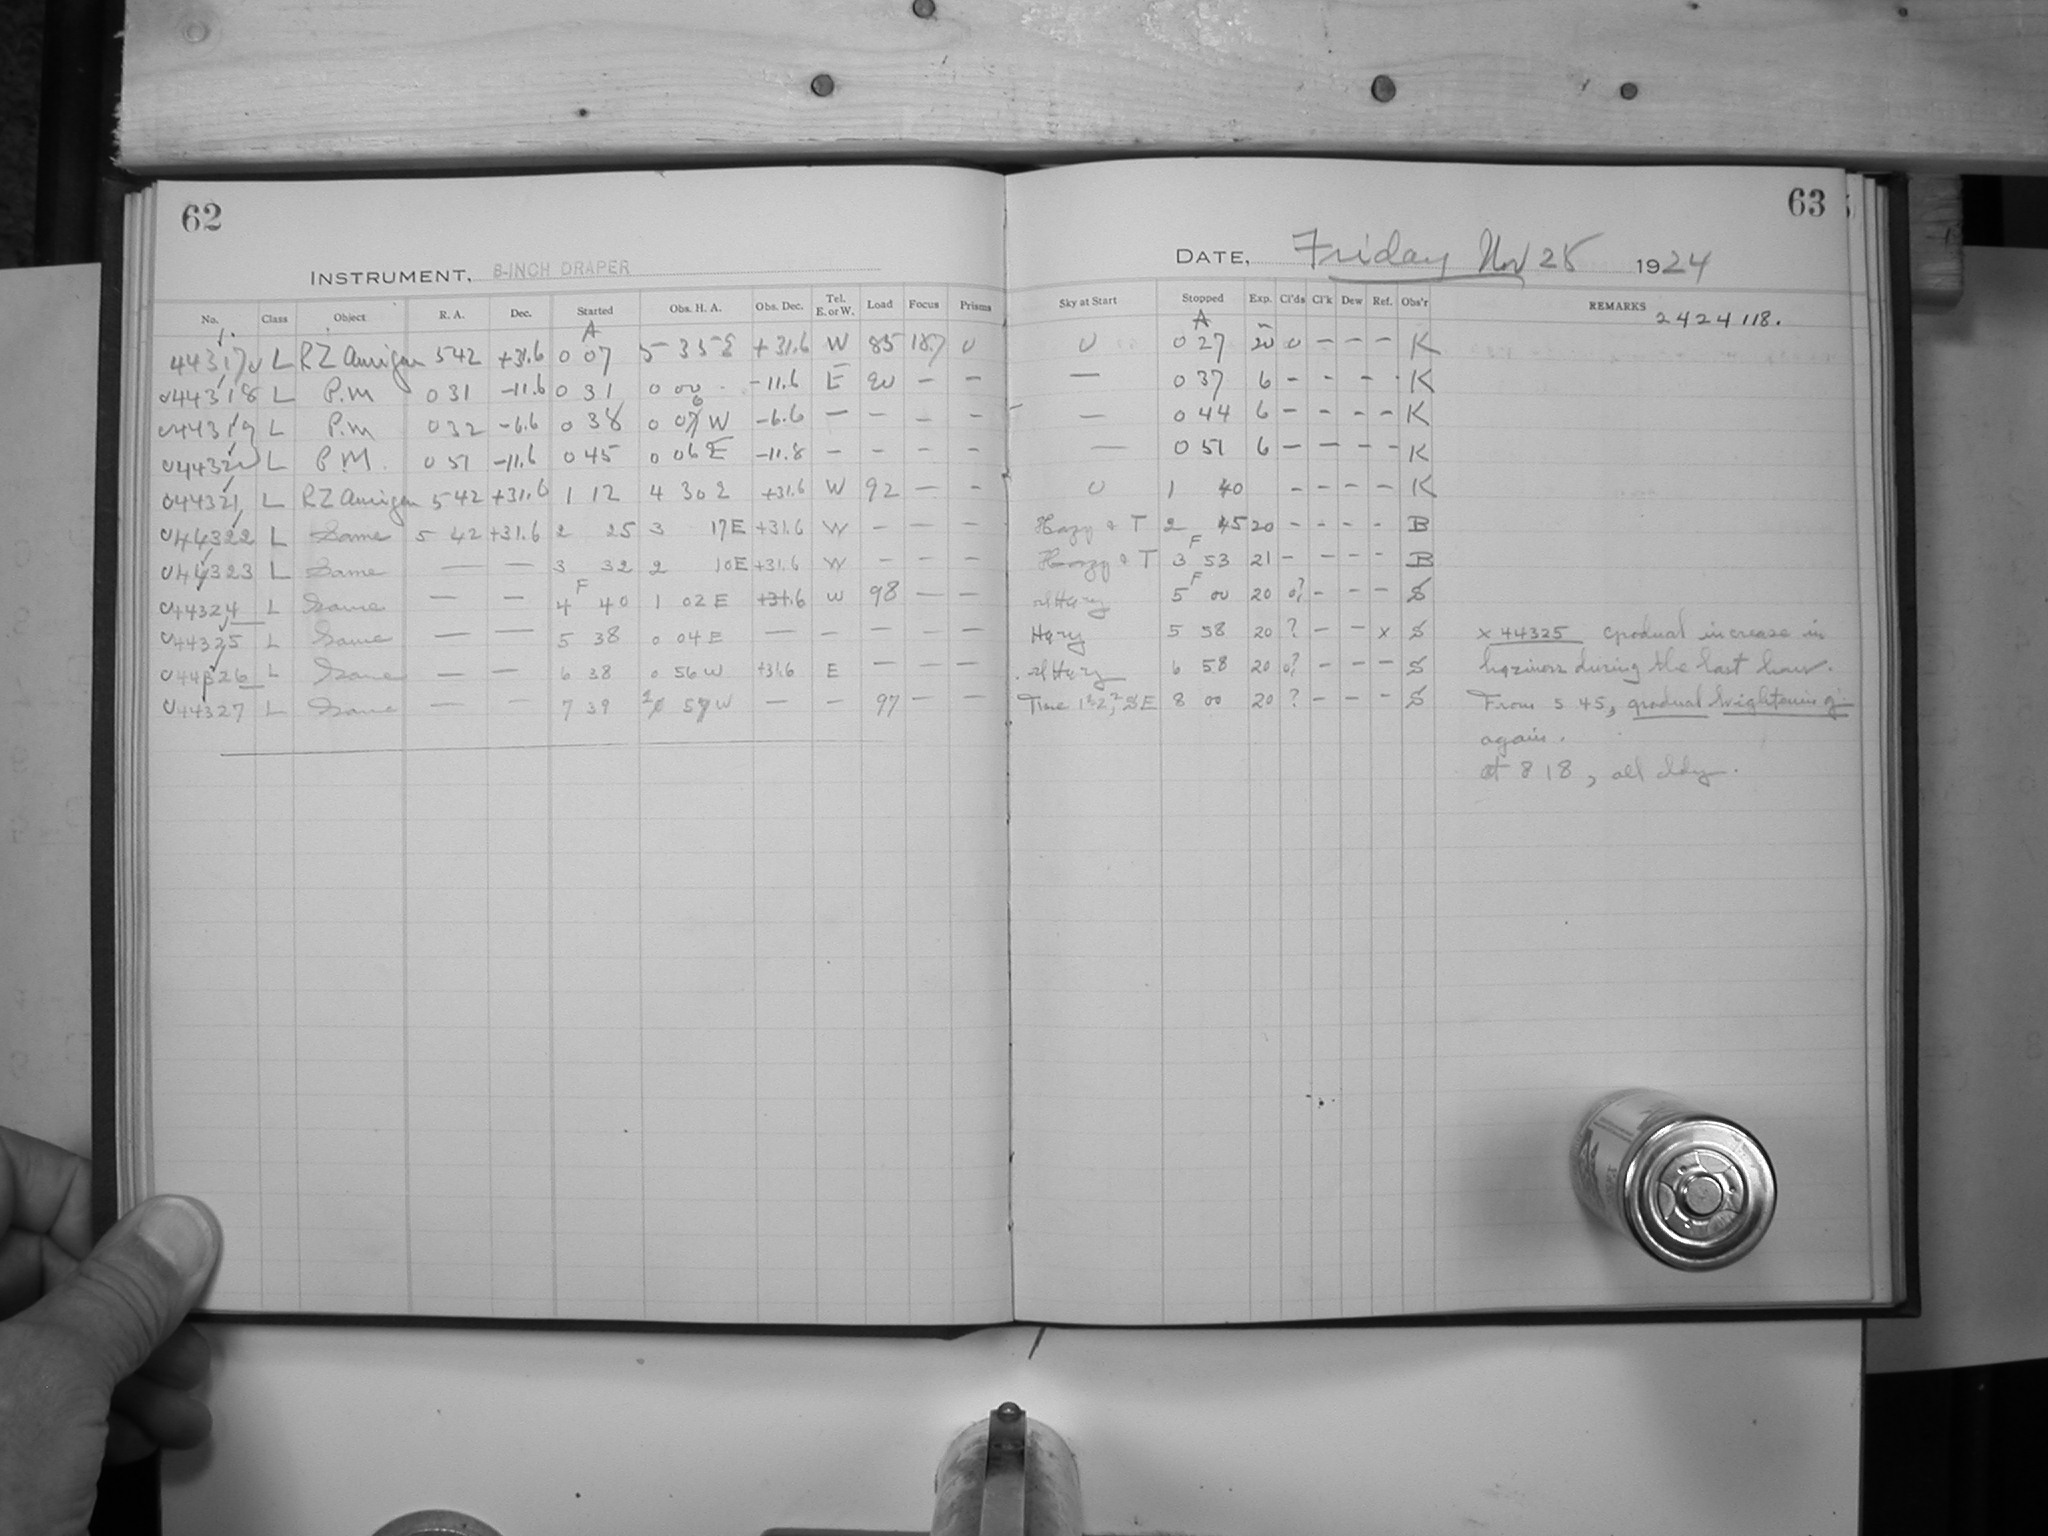 62
INSTRUMENT, 8-INCH DRAPER
No. Class Object R. A. Dec. Started Obs. H. A. Obs. Dec. Tel. E. or W. Load Focus Prisms
A
44317 L RZ Aurigae 5 42 +31.6 0 07 5 35 E +31.6 W 85 18.7 0
44318 L P.M 0 31 -11.6 0 31 0 00 -11.6 E 90 — —
44319 L P.M 0 32 -6.6 0 38 0 06 W -6.6 — — — —
44320 L P.M. 0 51 -11.6 0 45 0 06 E -11.8 — — — —
44321 L RZ Aurigae 5 42 +31.6 1 12 4 30 E +31.6 W 92 — —
44322 L Same 5 42 +31.6 2 25 3 17 E +31.6 W — — —
44323 L Same — — 3 32 2 10 E +31.6 W — — —
F
44324 L Same — — 4 40 1 02 E +31.6 W 98 — —
44325 L Same — — 5 38 0 04 E — — — — —
44326 L Same — — 6 38 0 56 W +31.6 E — — —
44327 L Same — — 7 39 57 W — — 97 — —
63
DATE, Friday Nov 28 1924
Sky at Start Stopped Exp. Cl'ds Cl'k Dew Ref. Obs'r REMARKS
2424118.
A
0 0 27 20 0 — — — K
— 0 37 6 — — — — K
— 0 44 6 — — — — K
— 0 51 6 — — — — K
0 1 40 — — — — K
Hazy & T 2 45 20 — — — — B
F
Hazy & T 3 53 21 — — — — B
F
Hazy 5 00 20 0? — — — S
Hazy 5 58 20 ? — — x S x 44325 Gradual increase in
Hazy 6 58 20 0? — — — S haziness during the last hour.
Time SE 8 00 20 ? — — — S From 5 45, gradual brightening
again.
at 8 18, all cldy.